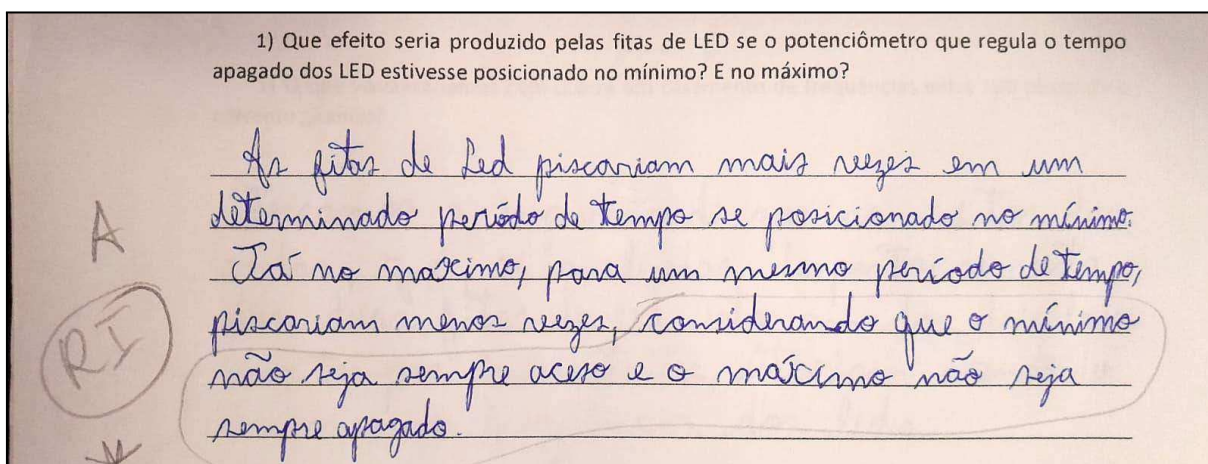 1) Que efeito seria produzido pelas fitas de LED se o potenciômetro que regula o tempo
apagado dos LED estivesse posicionado no mínimo? E no máximo?
As fitas de Led piscariam mais vezes em um
determinado período de tempo se posicionado no mínimo.
Já no maximo, para um mesmo período de tempo,
piscariam menos vezes, considerando que o mínimo
não seja sempre aceso e o máximo não seja
sempre apagado.
A
RI
*